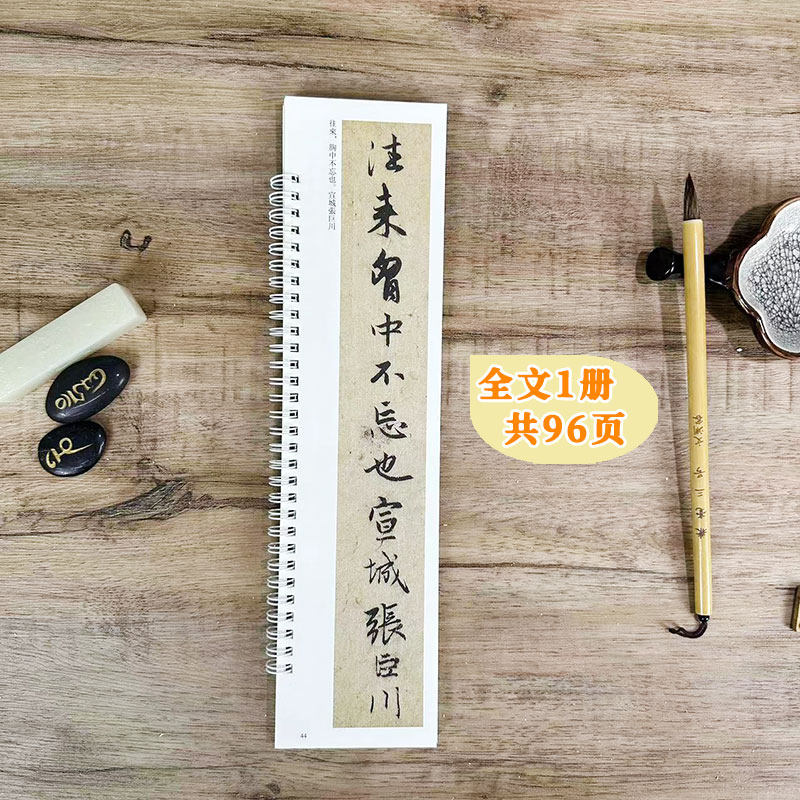 往来、胸中不忘也。宣城張巨川
往来胷中不忘也宣城張巨川
44
全文1册
共96页